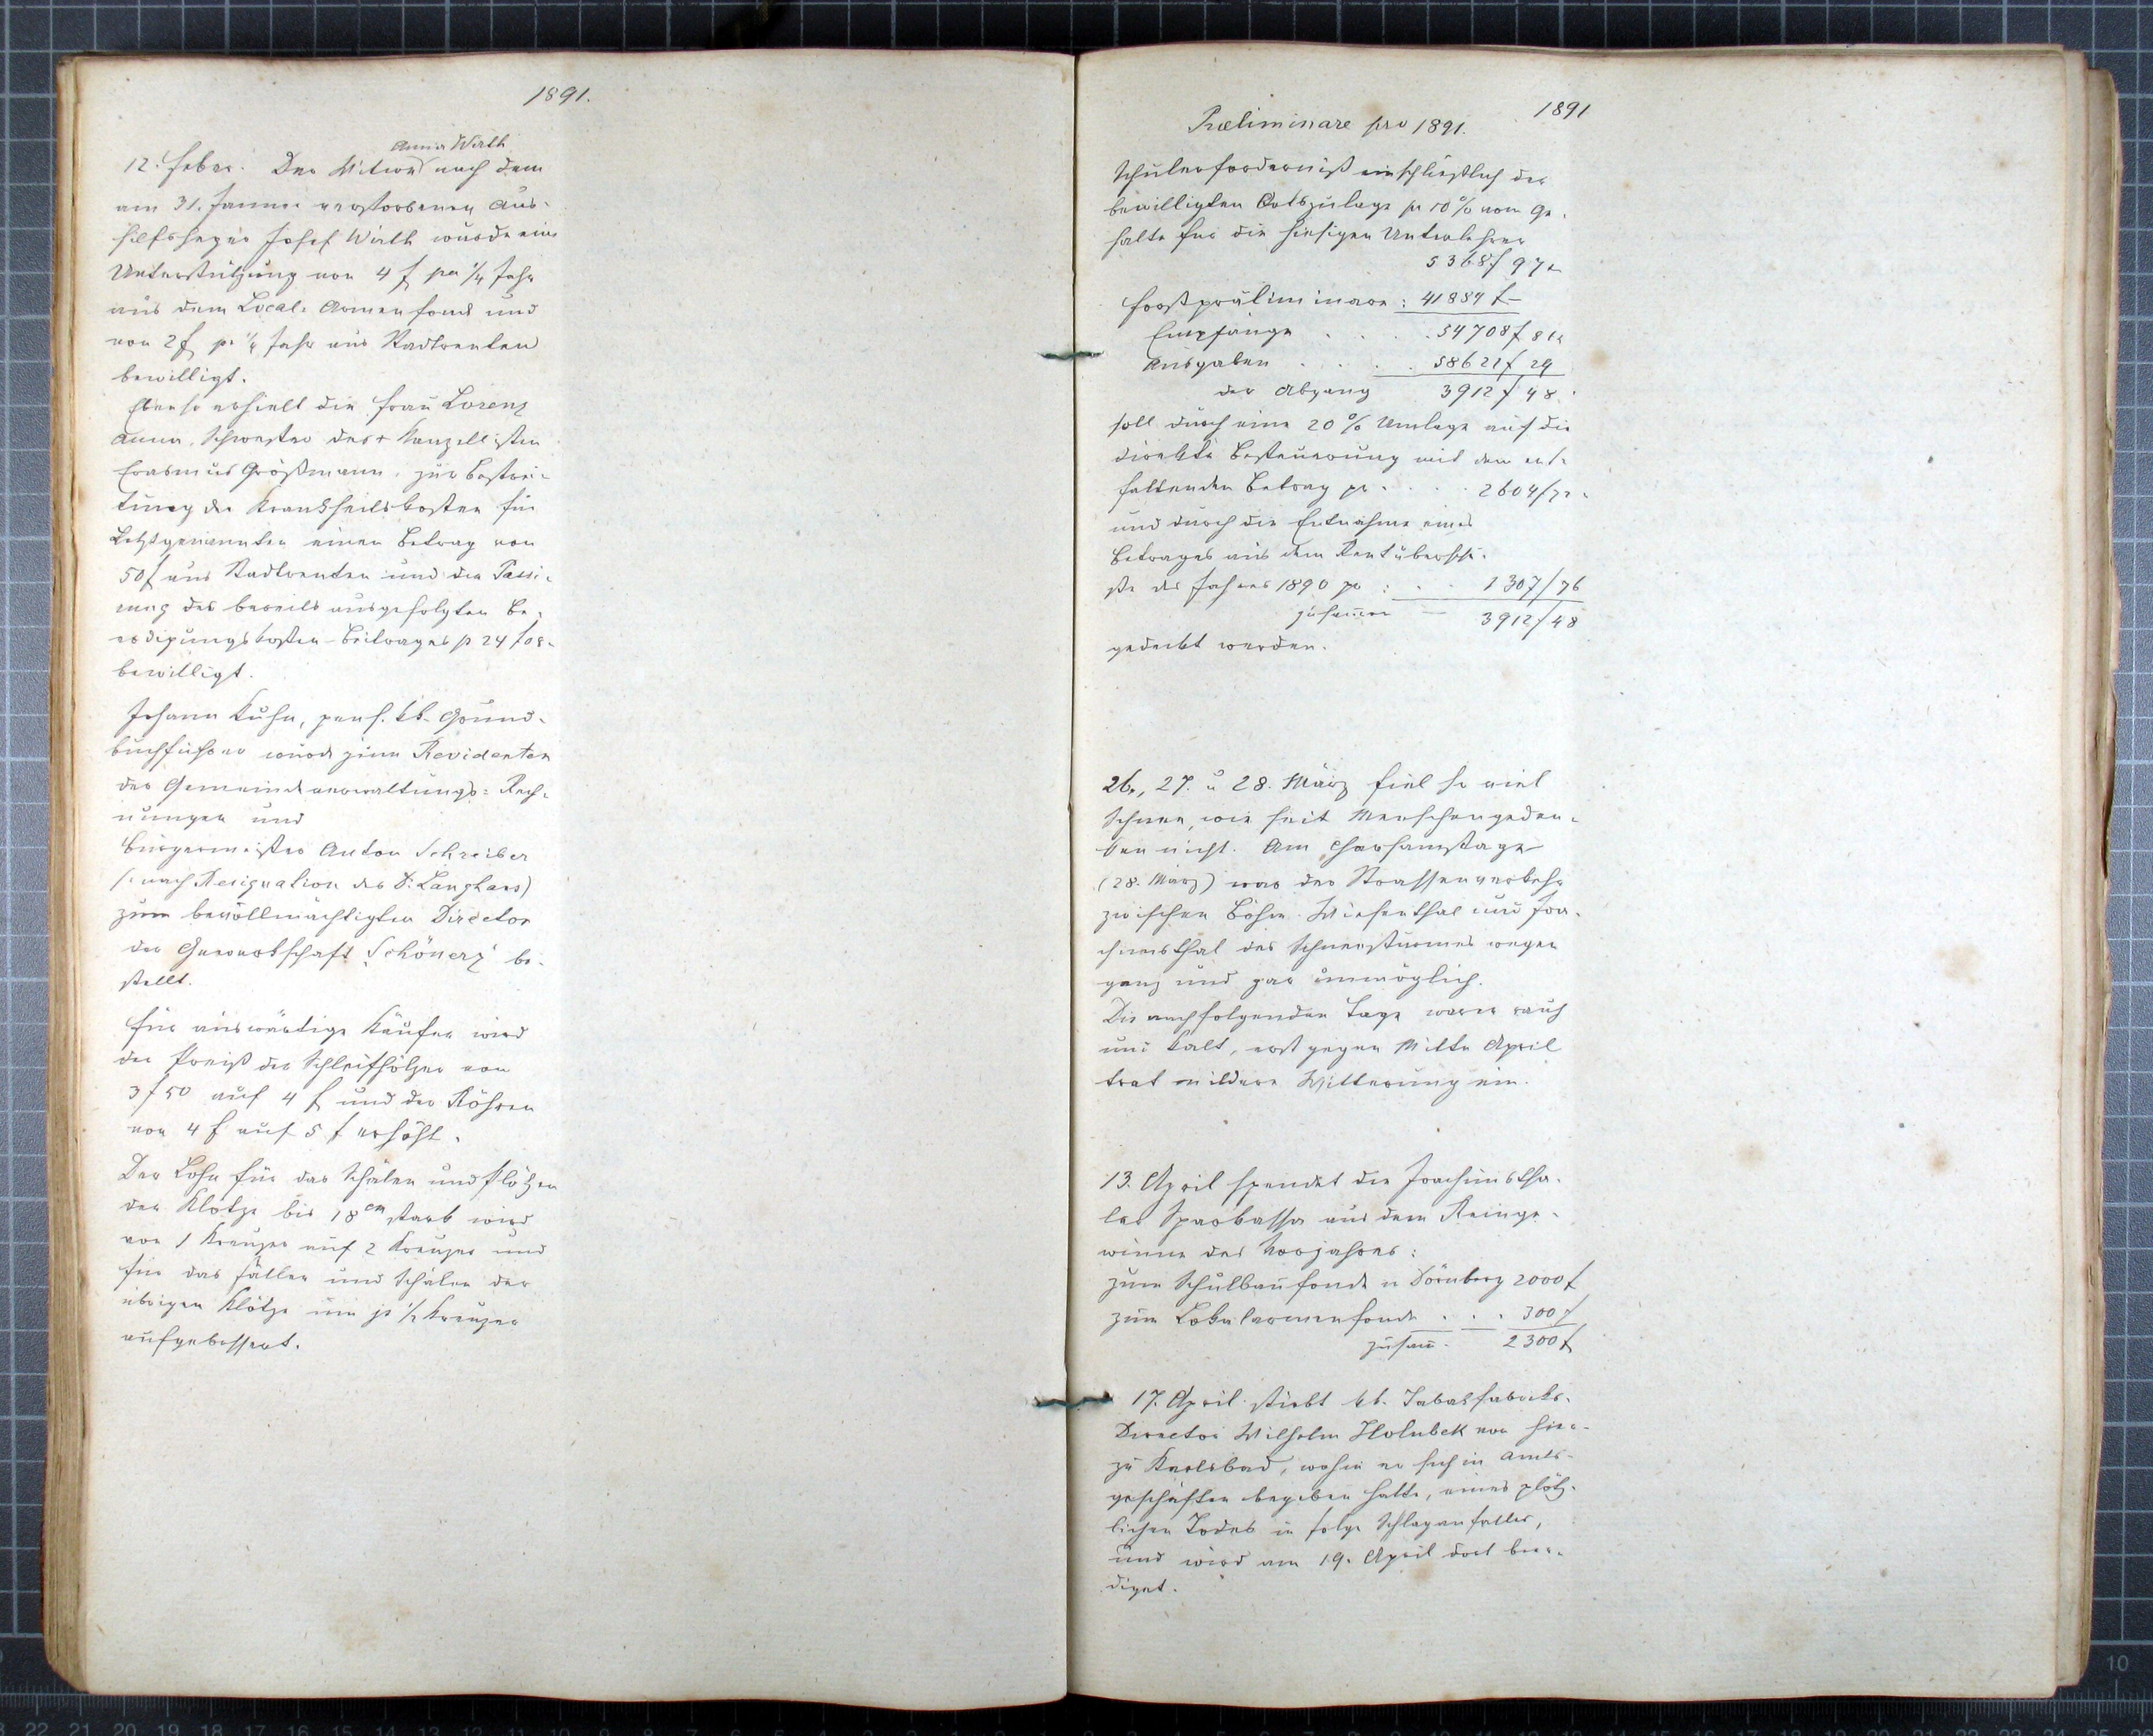 1891.
Anna Wirth
12. Febr. Der Witwe nach dem
am 31. Januar verstorbenen Aus-
hilfsheger Josef Wirth wurde eine
Unterstützung von 4 f per 1/4 Jahr
aus dem Local-Armenfond und
von 2 f pr 1/4 Jahr aus Stadtrenten
bewilligt.
Ebenso erhielt die Frau Lorenz
Anna, Schwester des + Kanzellisten
Erasmus Größmann, zur Bestrei-
tung der Krankheitskosten für
Letztgenannten einen Betrag von
50 f aus Stadtrenten und die Passi-
rung des bereits ausgefolgten Be-
erdigungskosten-Beitrages p 24 f 08.
bewilligt.
Johann Kuhn, pens. kk. Grund-
buchführer wurde zum Revidenten
der Gemeindeverwaltungs-Rech-
nungen und
Bürgermeister Anton Schreiber
(: nach Resignation des Dr. Langhans)
zum bevollmächtigten Director
der Gewerkschaft "Schönerz" be-
stellt.
Für auswärtige Käufer wird
der Preiß der Schleifhölzer von
3 f 50 auf 4 f und der Röhren
von 4 f auf 5 f erhöht.
Der Lohn für das Schälen und Flößen
der Klötze bis 18 cm stark wird
von 1 Kreuzer auf 2 Kreuzer und
für das Fällen und Schälen der
übrigen Klötze um je 1/2 Kreuzer
aufgebessert.
1891
Præliminare pro 1891.
Schulerforderniß einschließlich der
bewilligten Ortszulage pr 10 % vom Ge-
halte für die hiesigen Unterlehrer
5368 f 97 x
Forstpräliminare: 41884 f —
Empfänge . . . . 54708 f 81 x
Ausgaben . . . . 58621 f 29
der Abgang 3912 f 48.
soll durch eine 20 % Umlage auf die
direkte Besteuerung mit dem ent-
fallenden Betrag pr . . . 2604 f 72.
und durch die Entnahme eines
Betrages aus dem Rentüberschu-
ße des Jahres 1890 pr : . . 1307 f 76
zusammen — 3912 f 48
gedeckt werden.
26., 27. u 28. März fiel so viel
Schnee, wie seit Menschengeden-
ken nicht. Am Charsamstage
(28. März) war der Strassenverkehr
zwischen Böhm. Wiesenthal und Joa-
chimsthal des Schneesturmes wegen
ganz und gar unmöglich.
Die nachfolgenden Tage waren rauh
und kalt, erst gegen Mitte April
trat mildere Witterung ein.
13. April spendet die Joachimstha-
ler Sparkassa aus dem Reinge-
winne des Vorjahres:
zum Schulbaufonde in Dürnberg 2000 f
zum Lokalarmenfonde . . . 300 f
zusam̄. 2300 f
17. April stirbt kk. Tabakfabriks-
Director Wilhelm Holubek von hier
zu Karlsbad, wohin er sich in Amts-
geschäften begeben hatte, eines plötz-
lichen Todes in Folge Schlaganfalles,
und wird am 19. April dort beer-
diget.
10
22 21 20 19 18 17 16 15 14 13 12 11 10 9 8 7